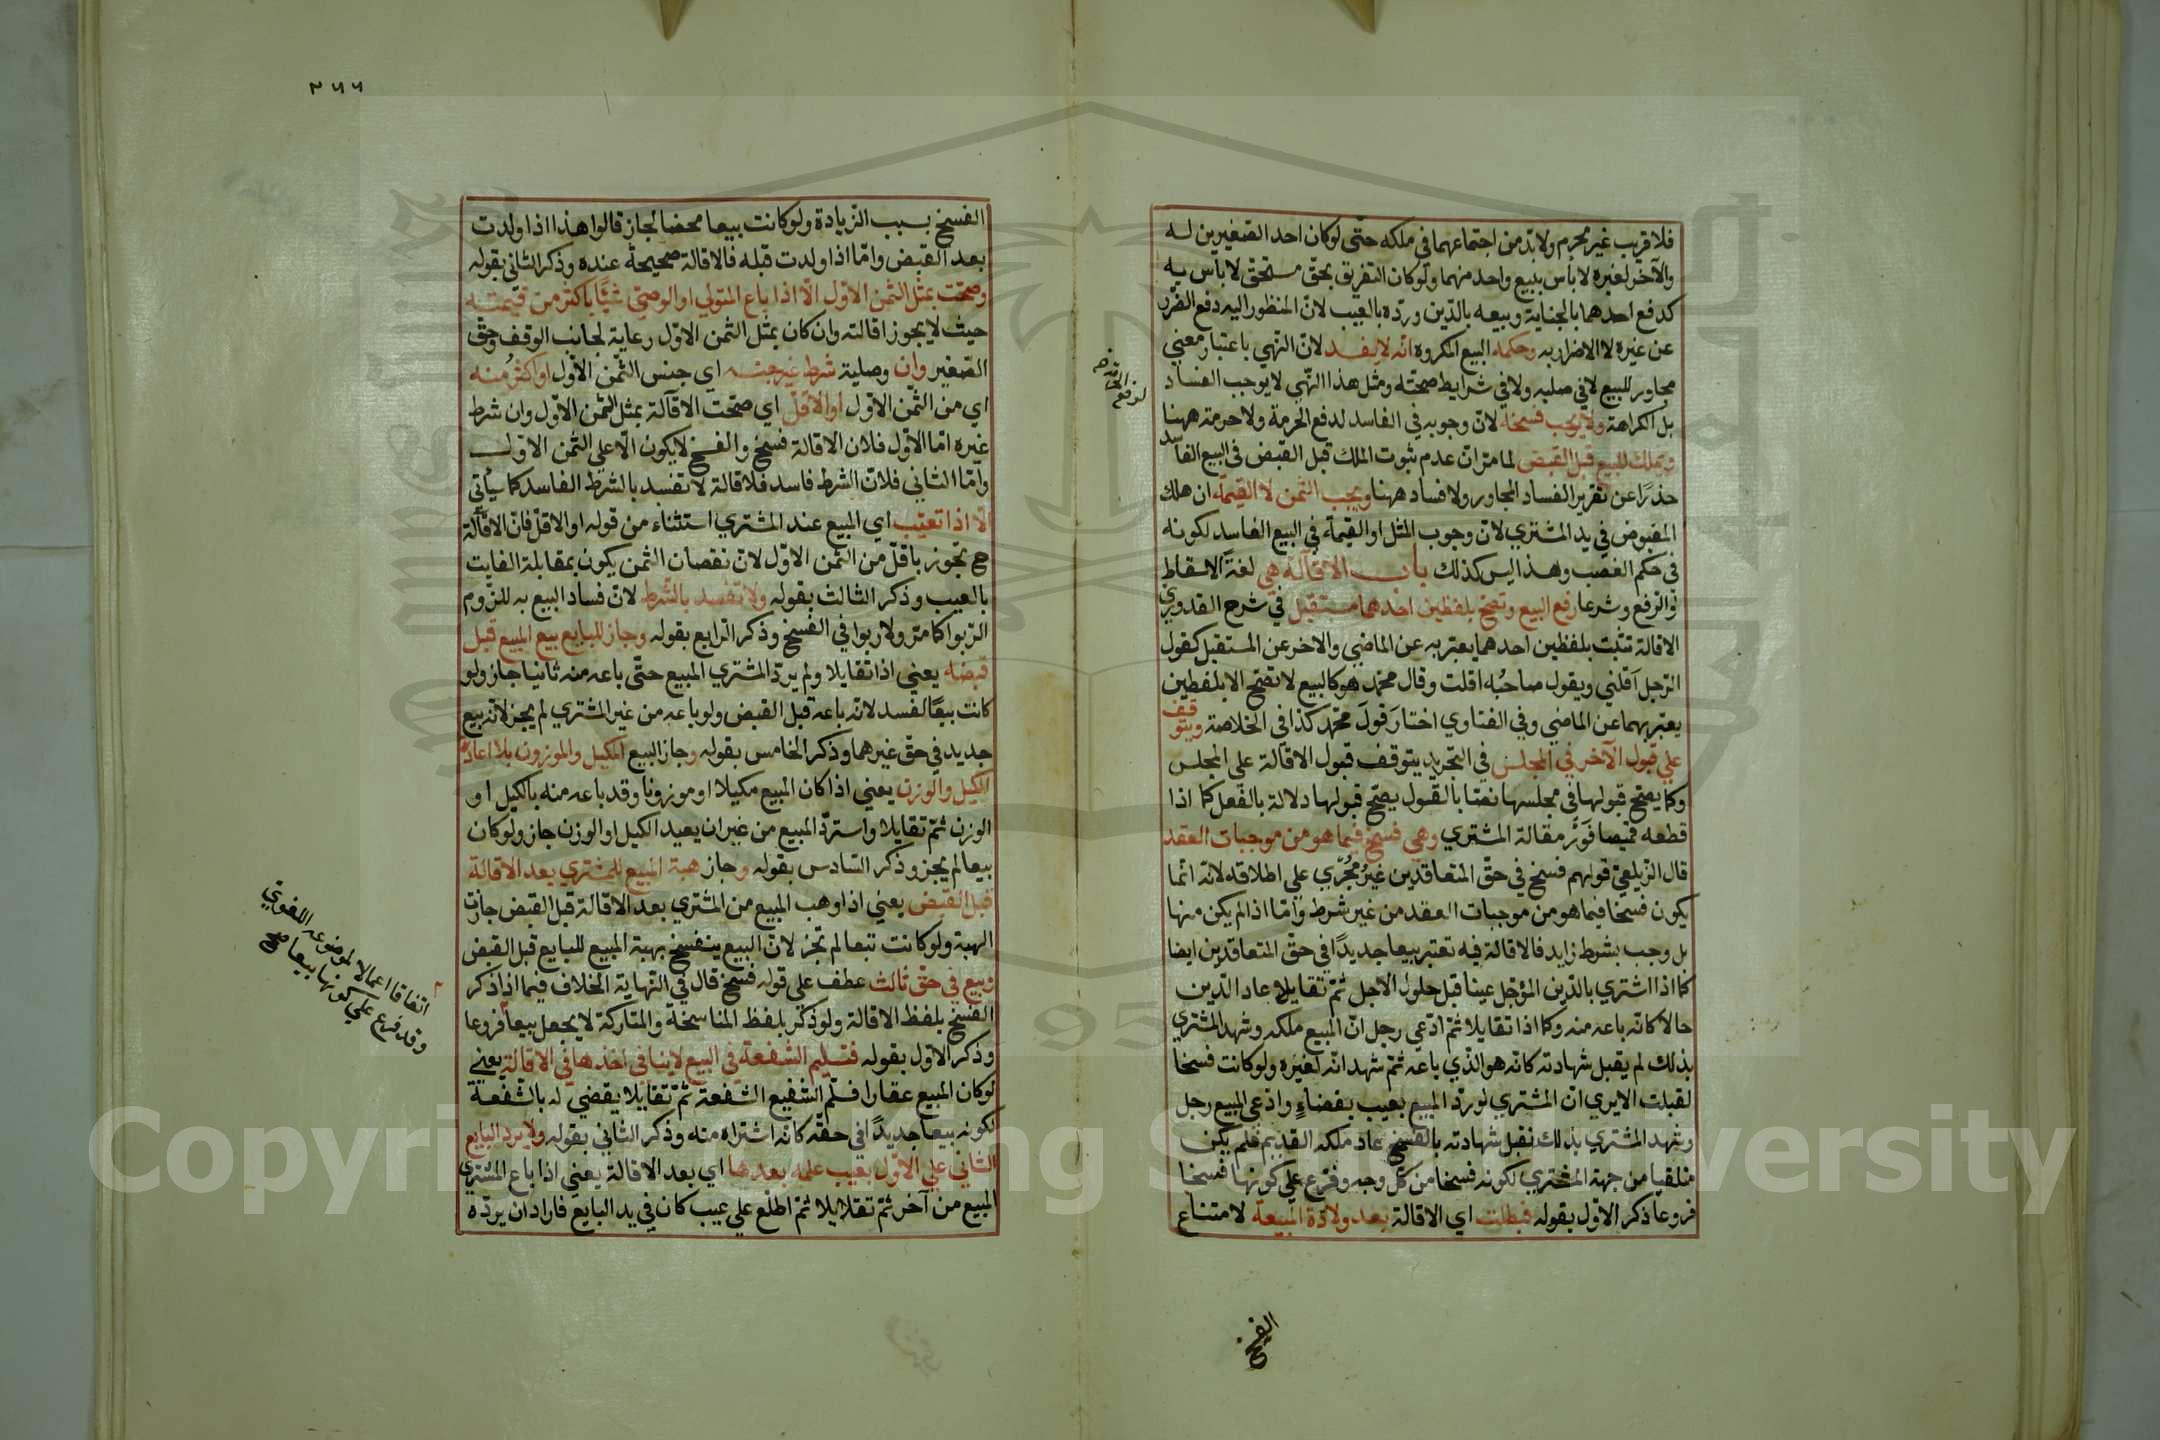 فلا قريب غير محرم ولا بد من اجتماعهما في ملكه حتى لو كان احد الصغيرين له
والآخر لغيره لا بأس ببيع واحد منهما ولو كان التفريق بحق مستحق لا باس به
كدفع احدهما بالجناية وبيعه بالدين ورده بالعيب لان المنظور اليه دفع الضرر
عن غيره لا الاضرار به وحكمه البيع المكروه انه لا يفسد لان النهي باعتبار معني
مجاور للبيع لا في صلبه ولا في شرايط صحته ومثل هذا النهي لا يوجب الفساد
بل الكراهة ولا يجب فسخه لان وجوبه في الفاسد لدفع الحرمة ولا حرمة ههنا
ويملك المبيع قبل القبض لما مر ان عدم ثبوت الملك قبل القبض في البيع الفاسد
حذرا عن تقرير الفساد المجاور ولا فساد ههنا ويجب الثمن لا القيمة ان هلك
المقبوض في يد المشتري لان وجوب المثل او القيمة في البيع الفاسد لكونه
في حكم الغصب وهذا ليس كذلك باب الاقالة هي لغة الاسقاط
والرفع وشرعا رفع البيع وتصح بلفظين احدهما مستقبل في شرح القدوري
الاقالة تثبت بلفظين احدهما يعتبر به عن الماضي والاخر عن المستقبل كقول
الرجل اقلني ويقول صاحبه اقلت وقال محمد هو كالبيع لا تصح الا بلفظين
يعتبر بهما عن الماضي وفي الفتاوي اختار قول محمد كذا في الخلاصة ويتوقف
علي قبول الآخر في المجلس في التجريد يتوقف قبول الاقالة علي المجلس
وكما يصح قبولها في مجلسها نصا بالقبول يصح قبولها دلالة بالفعل كما اذا
قطعه قميصا فور مقالة المشتري وهي فسخ فيما هو من موجبات العقد
قال الزيلعي قولهم فسخ في حق المتعاقدين غير مجري علي اطلاقه لانه انما
يكون فسخا فيما هو من موجبات العقد من غير شرط واما اذا لم يكن منها
بل وجب بشرط زايد فالاقالة فيه تعتبر بيعا جديدا في حق المتعاقدين ايضا
كما اذا اشتري بالدين المؤجل عينا قبل حلول الاجل ثم تقايلا عاد الدين
حالا كانه باعه منه وكما اذا تقايلا ثم ادعي رجل ان المبيع ملكه وشهد المشتري
بذلك لم يقبل شهادته كانه هو الذي باعه ثم شهد انه لغيره ولو كانت فسخا
لقبلت الا يري ان المشتري لو رد المبيع بعيب بقضاء وادعي المبيع رجل
وشهد المشتري بذلك تقبل شهادته بالفسخ عاد ملكه القديم فلم يكن
متلقيا من جهة المشتري لكونه فسخا من كل وجه وفرع علي كونها فسخا
فروعا ذكر الاول بقوله فبطلت اي الاقالة بعد ولادة المبيعة لامتناع
الفسخ
٢٦٦
الفسخ بسبب الزيادة ولو كانت بيعا محضا لجاز قالوا هذا اذا ولدت
بعد القبض واما اذا ولدت قبله فالاقالة صحيحة عنده وذكر الثاني بقوله
وصحت بمثل الثمن الاول الا اذا باع المتولي او الوصي شيئا باكثر من قيمته
حيث لا يجوز اقالته وان كان بمثل الثمن الاول رعاية لجانب الوقف وحق
الصغير وان وصلية شرط غير جنسه اي جنس الثمن الاول او اكثر منه
اي من الثمن الاول او الاقل اي صحت الاقالة بمثل الثمن الاول وان شرط
غيره اما الاول فلان الاقالة فسخ والفسخ لا يكون الا علي الثمن الاول
واما الثاني فلان الشرط فاسد فلاقالة لا تفسد بالشرط الفاسد كما سيأتي
الا اذا تعيب اي المبيع عند المشتري استثناء من قوله او الاقل فان الاقالة
ح تجوز باقل من الثمن الاول لان نقصان الثمن يكون بمقابلة الفايت
بالعيب وذكر الثالث بقوله ولا تفسد بالشرط لان فساد البيع به للزوم
الربوا كما مر ولا ربوا في الفسخ وذكر الرابع بقوله وجاز للبايع بيع المبيع قبل
قبضه يعني اذا تقايلا ولم يرد المشتري المبيع حتى باعه منه ثانيا جاز ولو
كانت بيعا لفسد لانه باعه قبل القبض ولو باعه من غير المشتري لم يجز لانه بيع
جديد في حق غيرهما وذكر الخامس بقوله وجاز البيع المكيل والموزون بلا اعادة
الكيل والوزن يعني اذا كان المبيع مكيلا او موزونا وقد باعه منه بالكيل او
الوزن ثم تقايلا واسترد المبيع من غير ان يعيد الكيل او الوزن جاز ولو كان
بيعا لم يجز وذكر السادس بقوله وجاز هبة المبيع للمشتري بعد الاقالة
قبل القبض يعني اذا وهب المبيع من المشتري بعد الاقالة قبل القبض جازت
الهبة ولو كانت تبعا لم تجز لان البيع ينفسخ بهبة المبيع للبايع قبل القبض
وبيع في حق ثالث عطف علي قوله فسخ قال في النهاية الخلاف فيما اذا ذكر
الفسخ بلفظ الاقالة ولو ذكر بلفظ المناسخة والمتاركة لا يجعل بيعا فروعا
وذكر الاول بقوله فتسليم الشفعة في البيع لا ينافي اخذها في الاقالة يعني
لو كان المبيع عقارا فسلم الشفيع الشفعة ثم تقايلا يقضي له بالشفعة
لكونه بيعا جديدا في حقه كانه اشتراه منه وذكر الثاني بقوله ولا يرد البايع
الثاني علي الاول بعيب علمه بعدها اي بعد الاقالة يعني اذا باع المشتري
المبيع من آخر ثم تقلايلا ثم اطلع علي عيب كان في يد البايع فاراد ان يرده
اتفاقا اعمالا لموضوعه اللغوي
وقد فرع علي كونها بيعا صح
Copyright © King Saud University